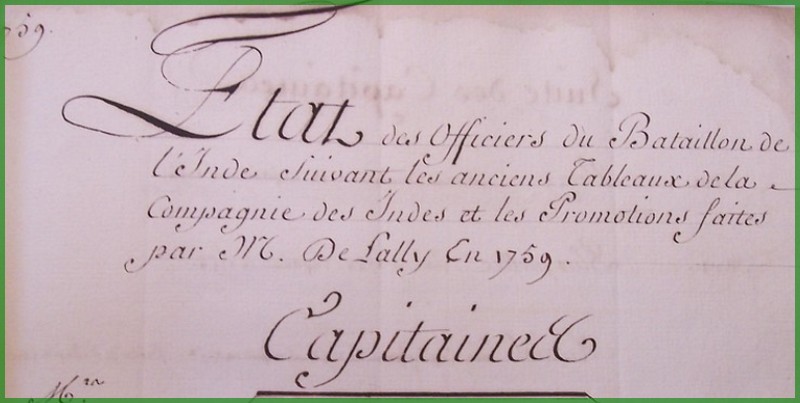 759.
Etat des Officiers du Bataillon de
l'Inde suivant les anciens Tableaux de la
Compagnie des Indes et les Promotions faites
par M. De Lally En 1759.
Capitaines
Mrs